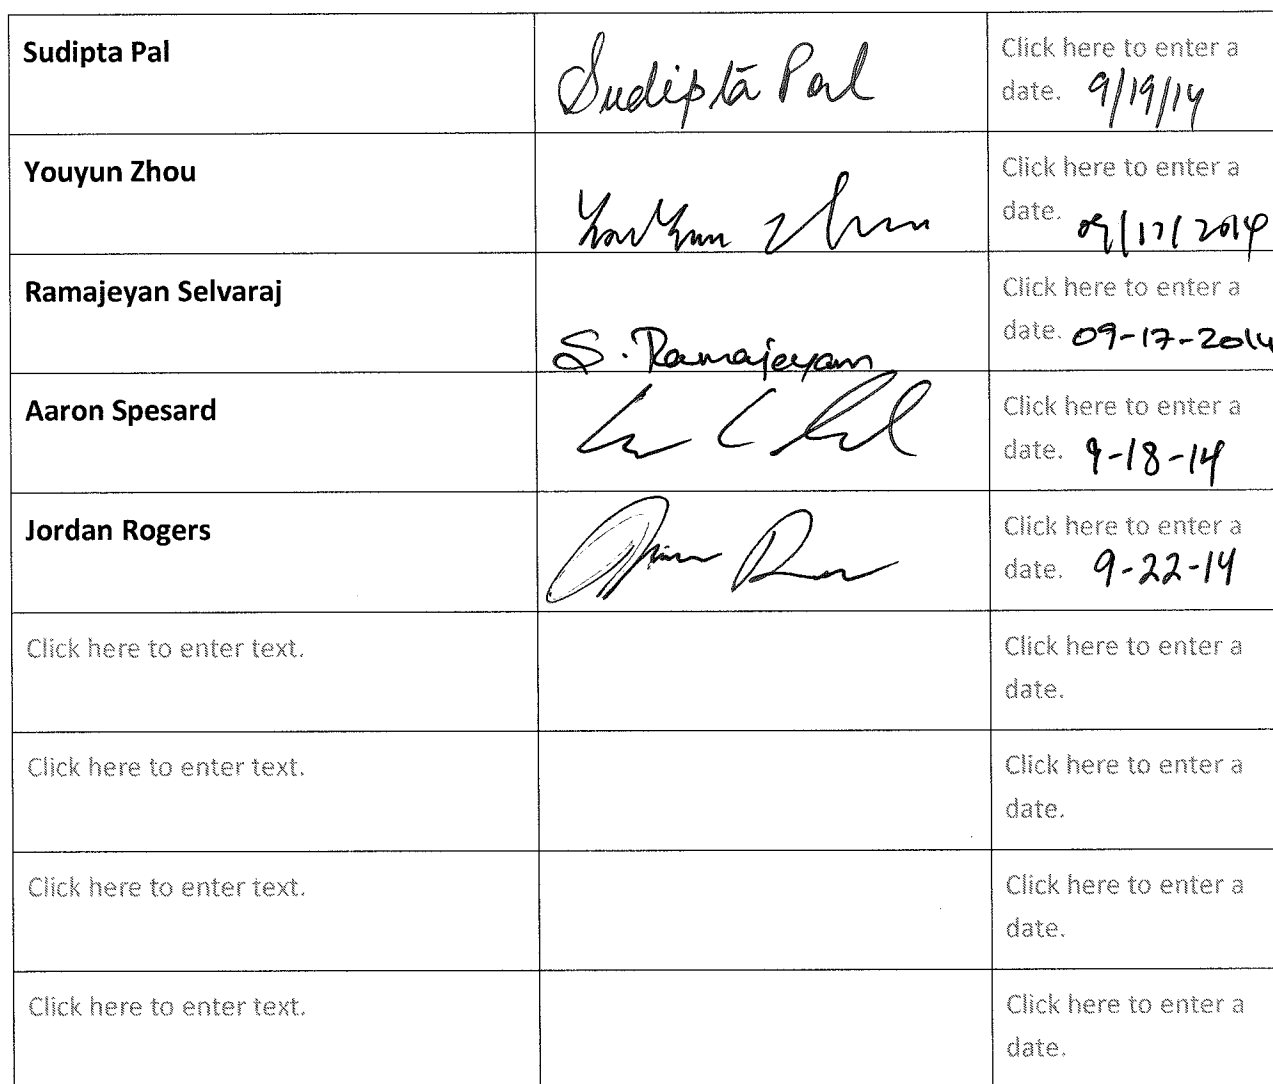 Sudipta Pal
Sudipta Pal
Click here to enter a
date. 9/19/14
Youyun Zhou
Youyun Zhou
Click here to enter a
date. 09/17/2014
Ramajeyan Selvaraj
S. Ramajeyam
Click here to enter a
date. 09-17-2014
Aaron Spesard
Click here to enter a
date. 9-18-14
Jordan Rogers
Click here to enter a
date. 9-22-14
Click here to enter text.
Click here to enter a
date.
Click here to enter text.
Click here to enter a
date.
Click here to enter text.
Click here to enter a
date.
Click here to enter text.
Click here to enter a
date.